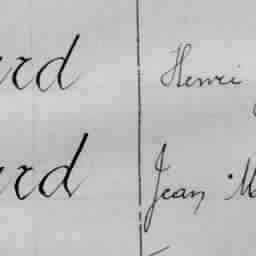 ard Henri
ard Jean M